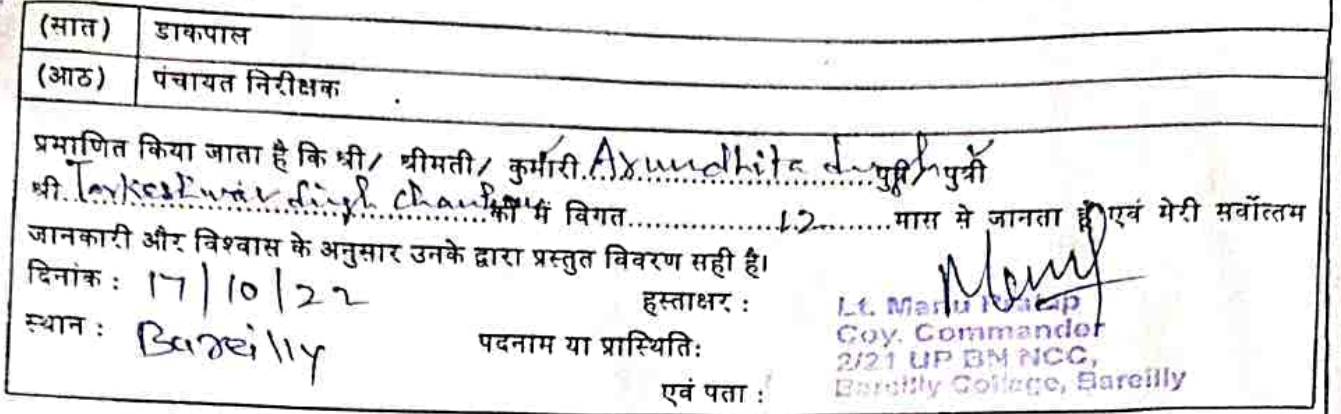 (सात) डाकपाल
(आठ) पंचायत निरीक्षक
प्रमाणित किया जाता है कि श्री/ श्रीमती/ कुमारी Arundhita Singh पुत्र/पुत्री
श्री Tarkeshwar Singh Chauhan को में विगत 12 मास मे जानता हूँ एवं मेरी सर्वोत्तम
जानकारी और विश्वास के अनुसार उनके द्वारा प्रस्तुत विवरण सही है।
दिनांक : 17/10/22 हस्ताक्षर :
स्थान : Bareilly पदनाम या प्रास्थिति:
एवं पता :
Lt. Manu Pratap
Coy. Commander
2/21 UP BN NCC,
Bareilly College, Bareilly